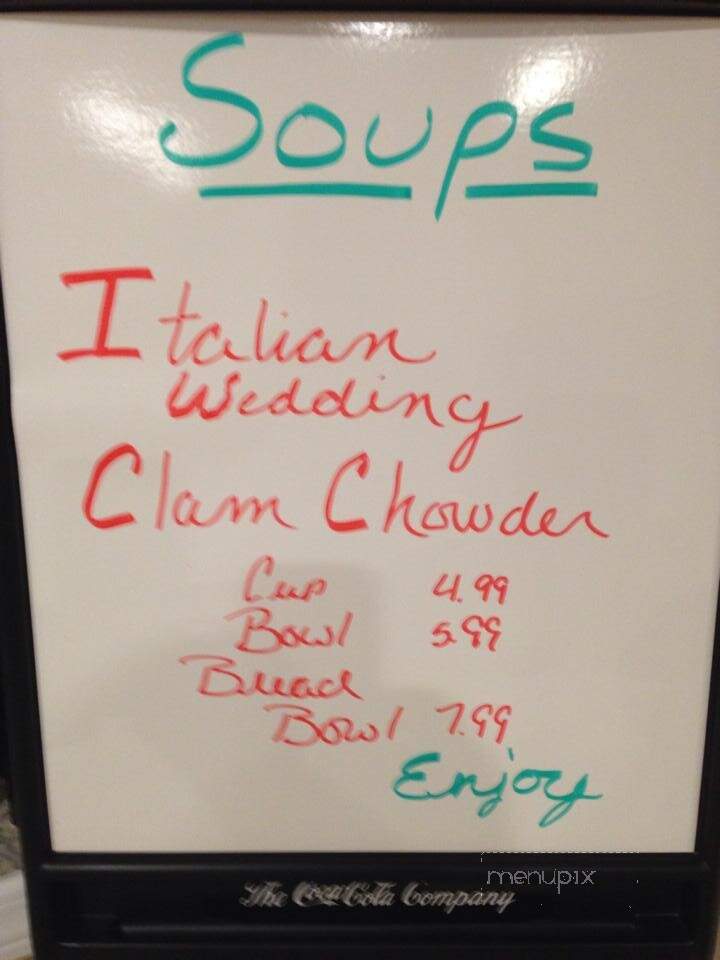 Soups
Italian
Wedding
Clam Chowder
Cup 4.99
Bowl 5.99
Bread
Bowl 7.99
Enjoy
menupix
The Coca-Cola Company